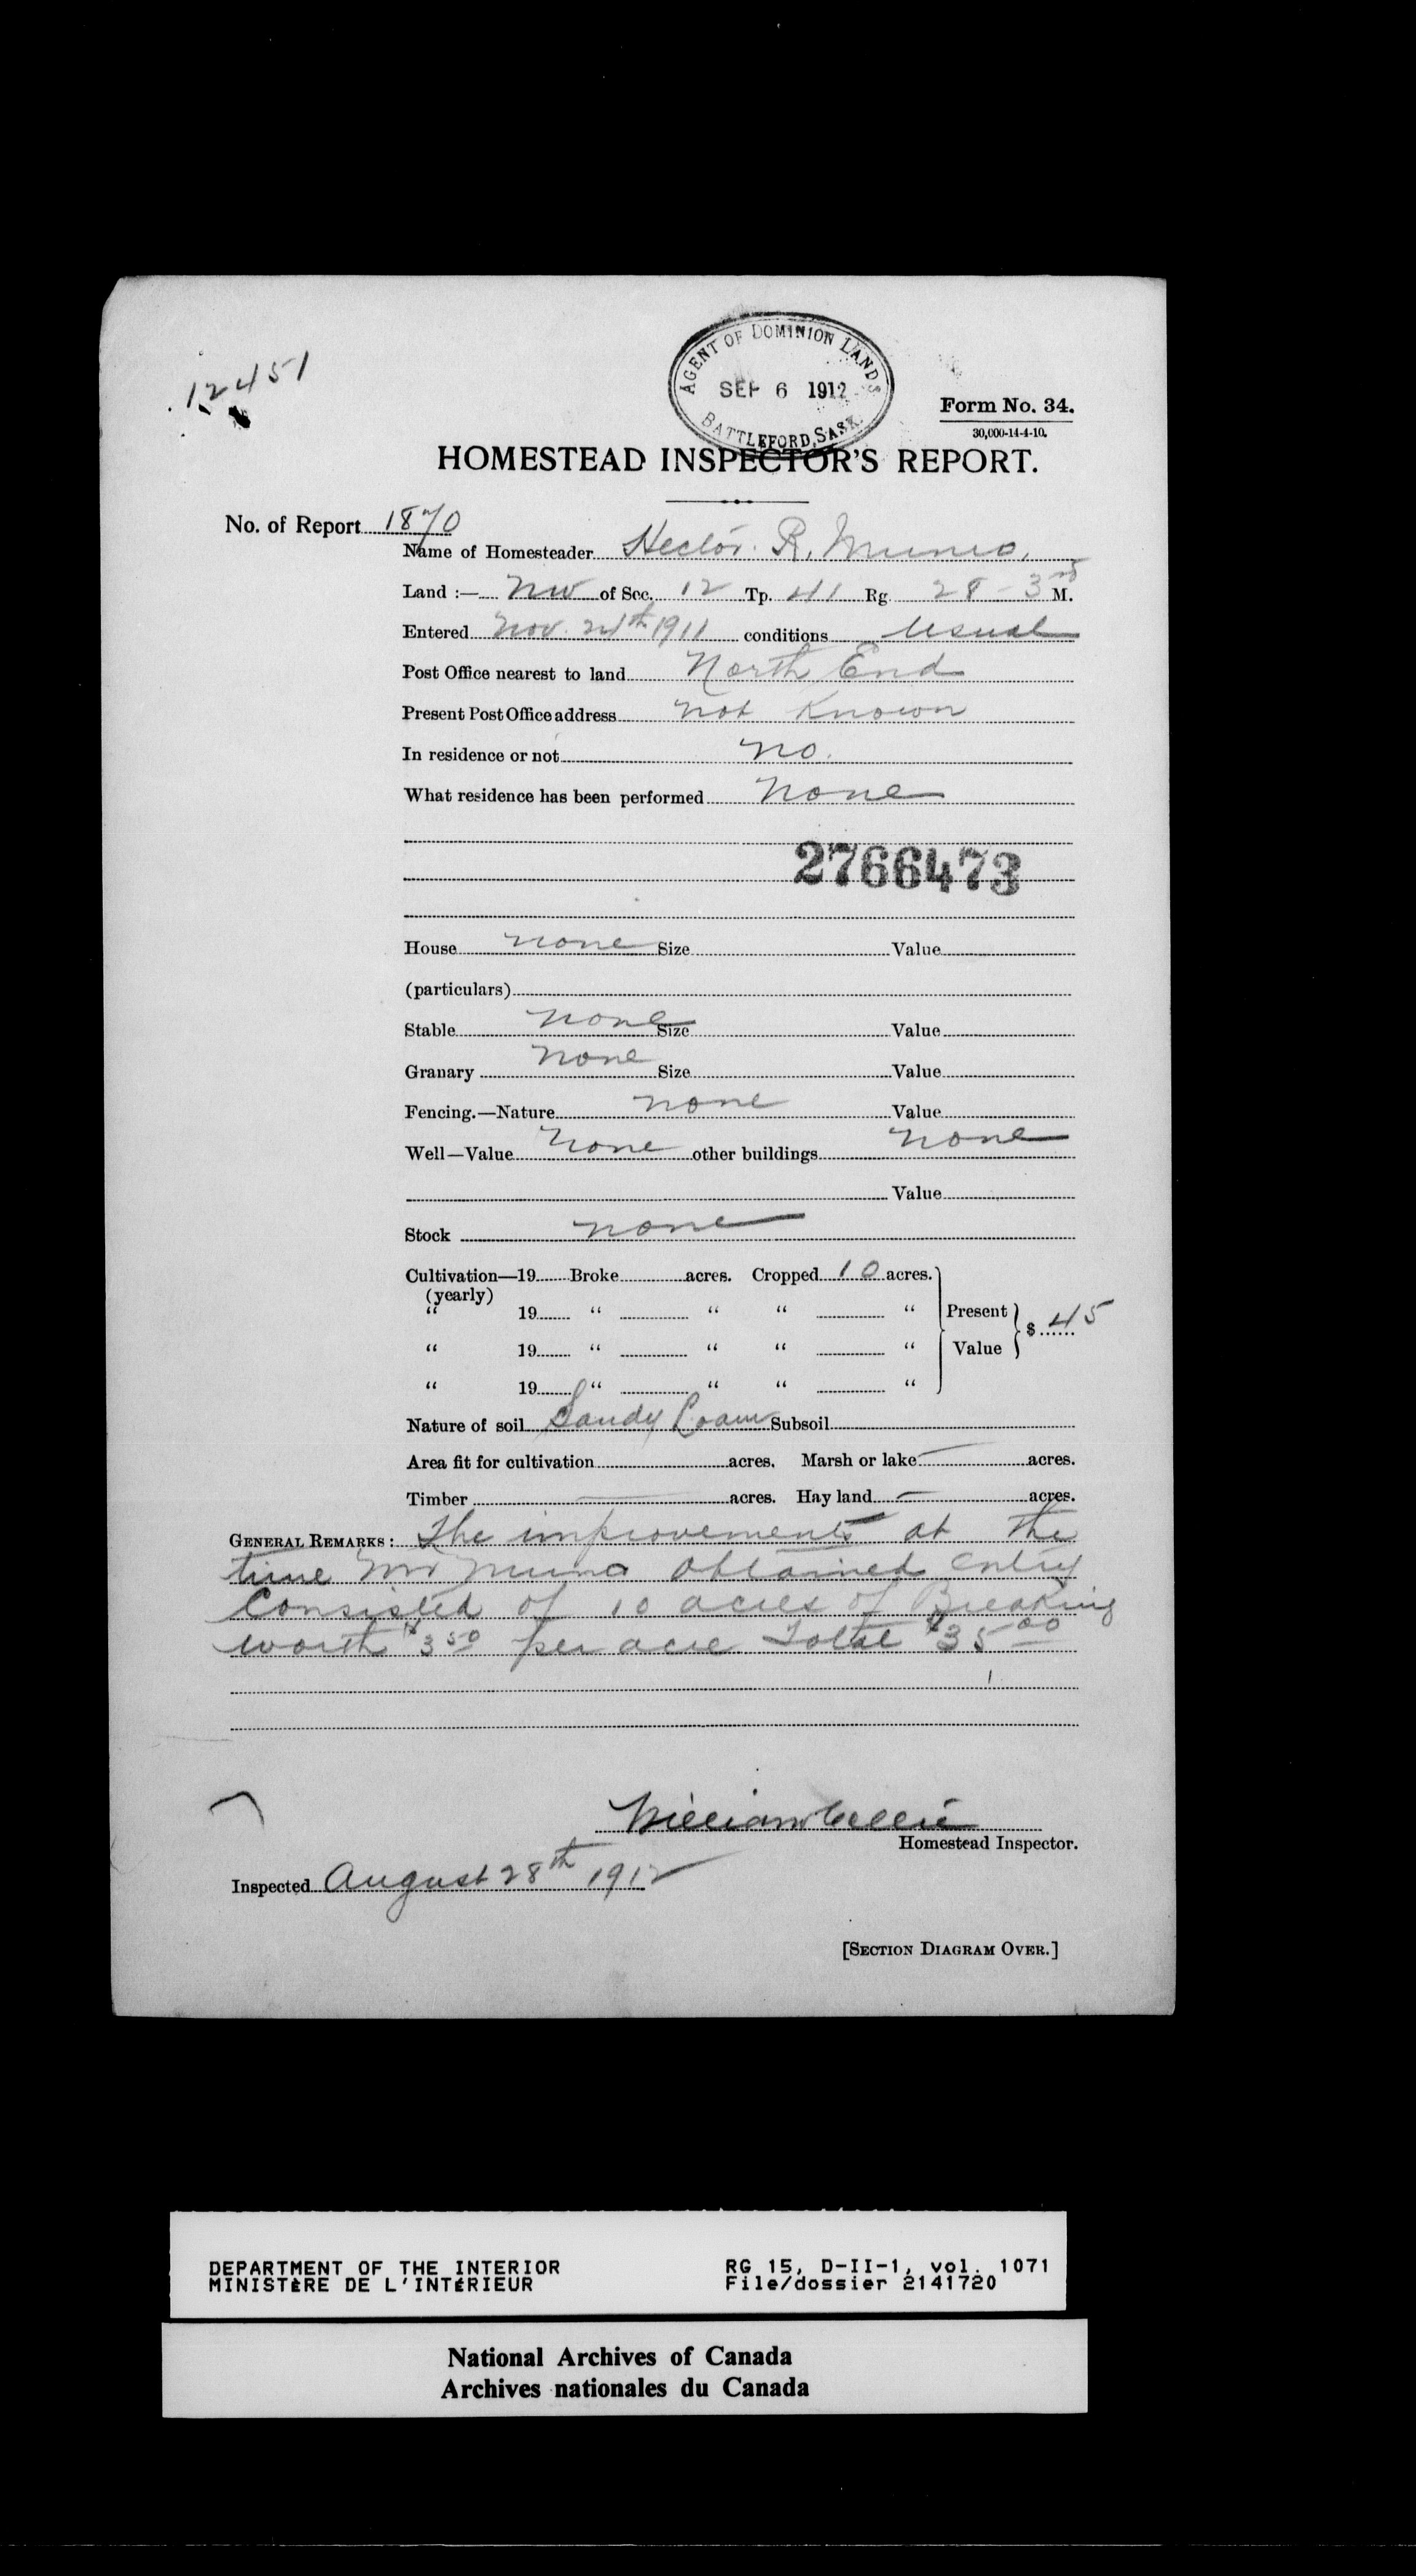 12451
AGENT OF DOMINION LANDS
SEP 6 1912
BATTLEFORD, SASK.
Form No. 34.
30,000-14-4-10.
HOMESTEAD INSPECTOR'S REPORT.
No. of Report 1870
Name of Homesteader Hector R. Munro.
Land :— NW of Sec. 12 Tp. 41 Rg. 28 - 3rd M.
Entered Nov. 24th 1911 conditions Usual
Post Office nearest to land North End
Present Post Office address not Known
In residence or not no.
What residence has been performed None
2766473
House none Size Value
(particulars)
Stable none Size Value
Granary none Size Value
Fencing.—Nature none Value
Well—Value None other buildings none
Value
Stock none
Cultivation—19 Broke acres. Cropped 10 acres.
(yearly)
" 19 " " " " Present $ 45
" 19 " " " " Value
" 19 " " " "
Nature of soil Sandy Loam Subsoil
Area fit for cultivation acres. Marsh or lake — acres.
Timber — acres. Hay land — acres.
GENERAL REMARKS: The improvements at the
time Mr Munro obtained entry
Consisted of 10 acres of Breaking
worth $3 50 per acre Total $35 00
William
Homestead Inspector.
Inspected August 28th 1912
[SECTION DIAGRAM OVER.]
DEPARTMENT OF THE INTERIOR RG 15, D-II-1, vol. 1071
MINISTÈRE DE L'INTÉRIEUR File/dossier 2141720
National Archives of Canada
Archives nationales du Canada